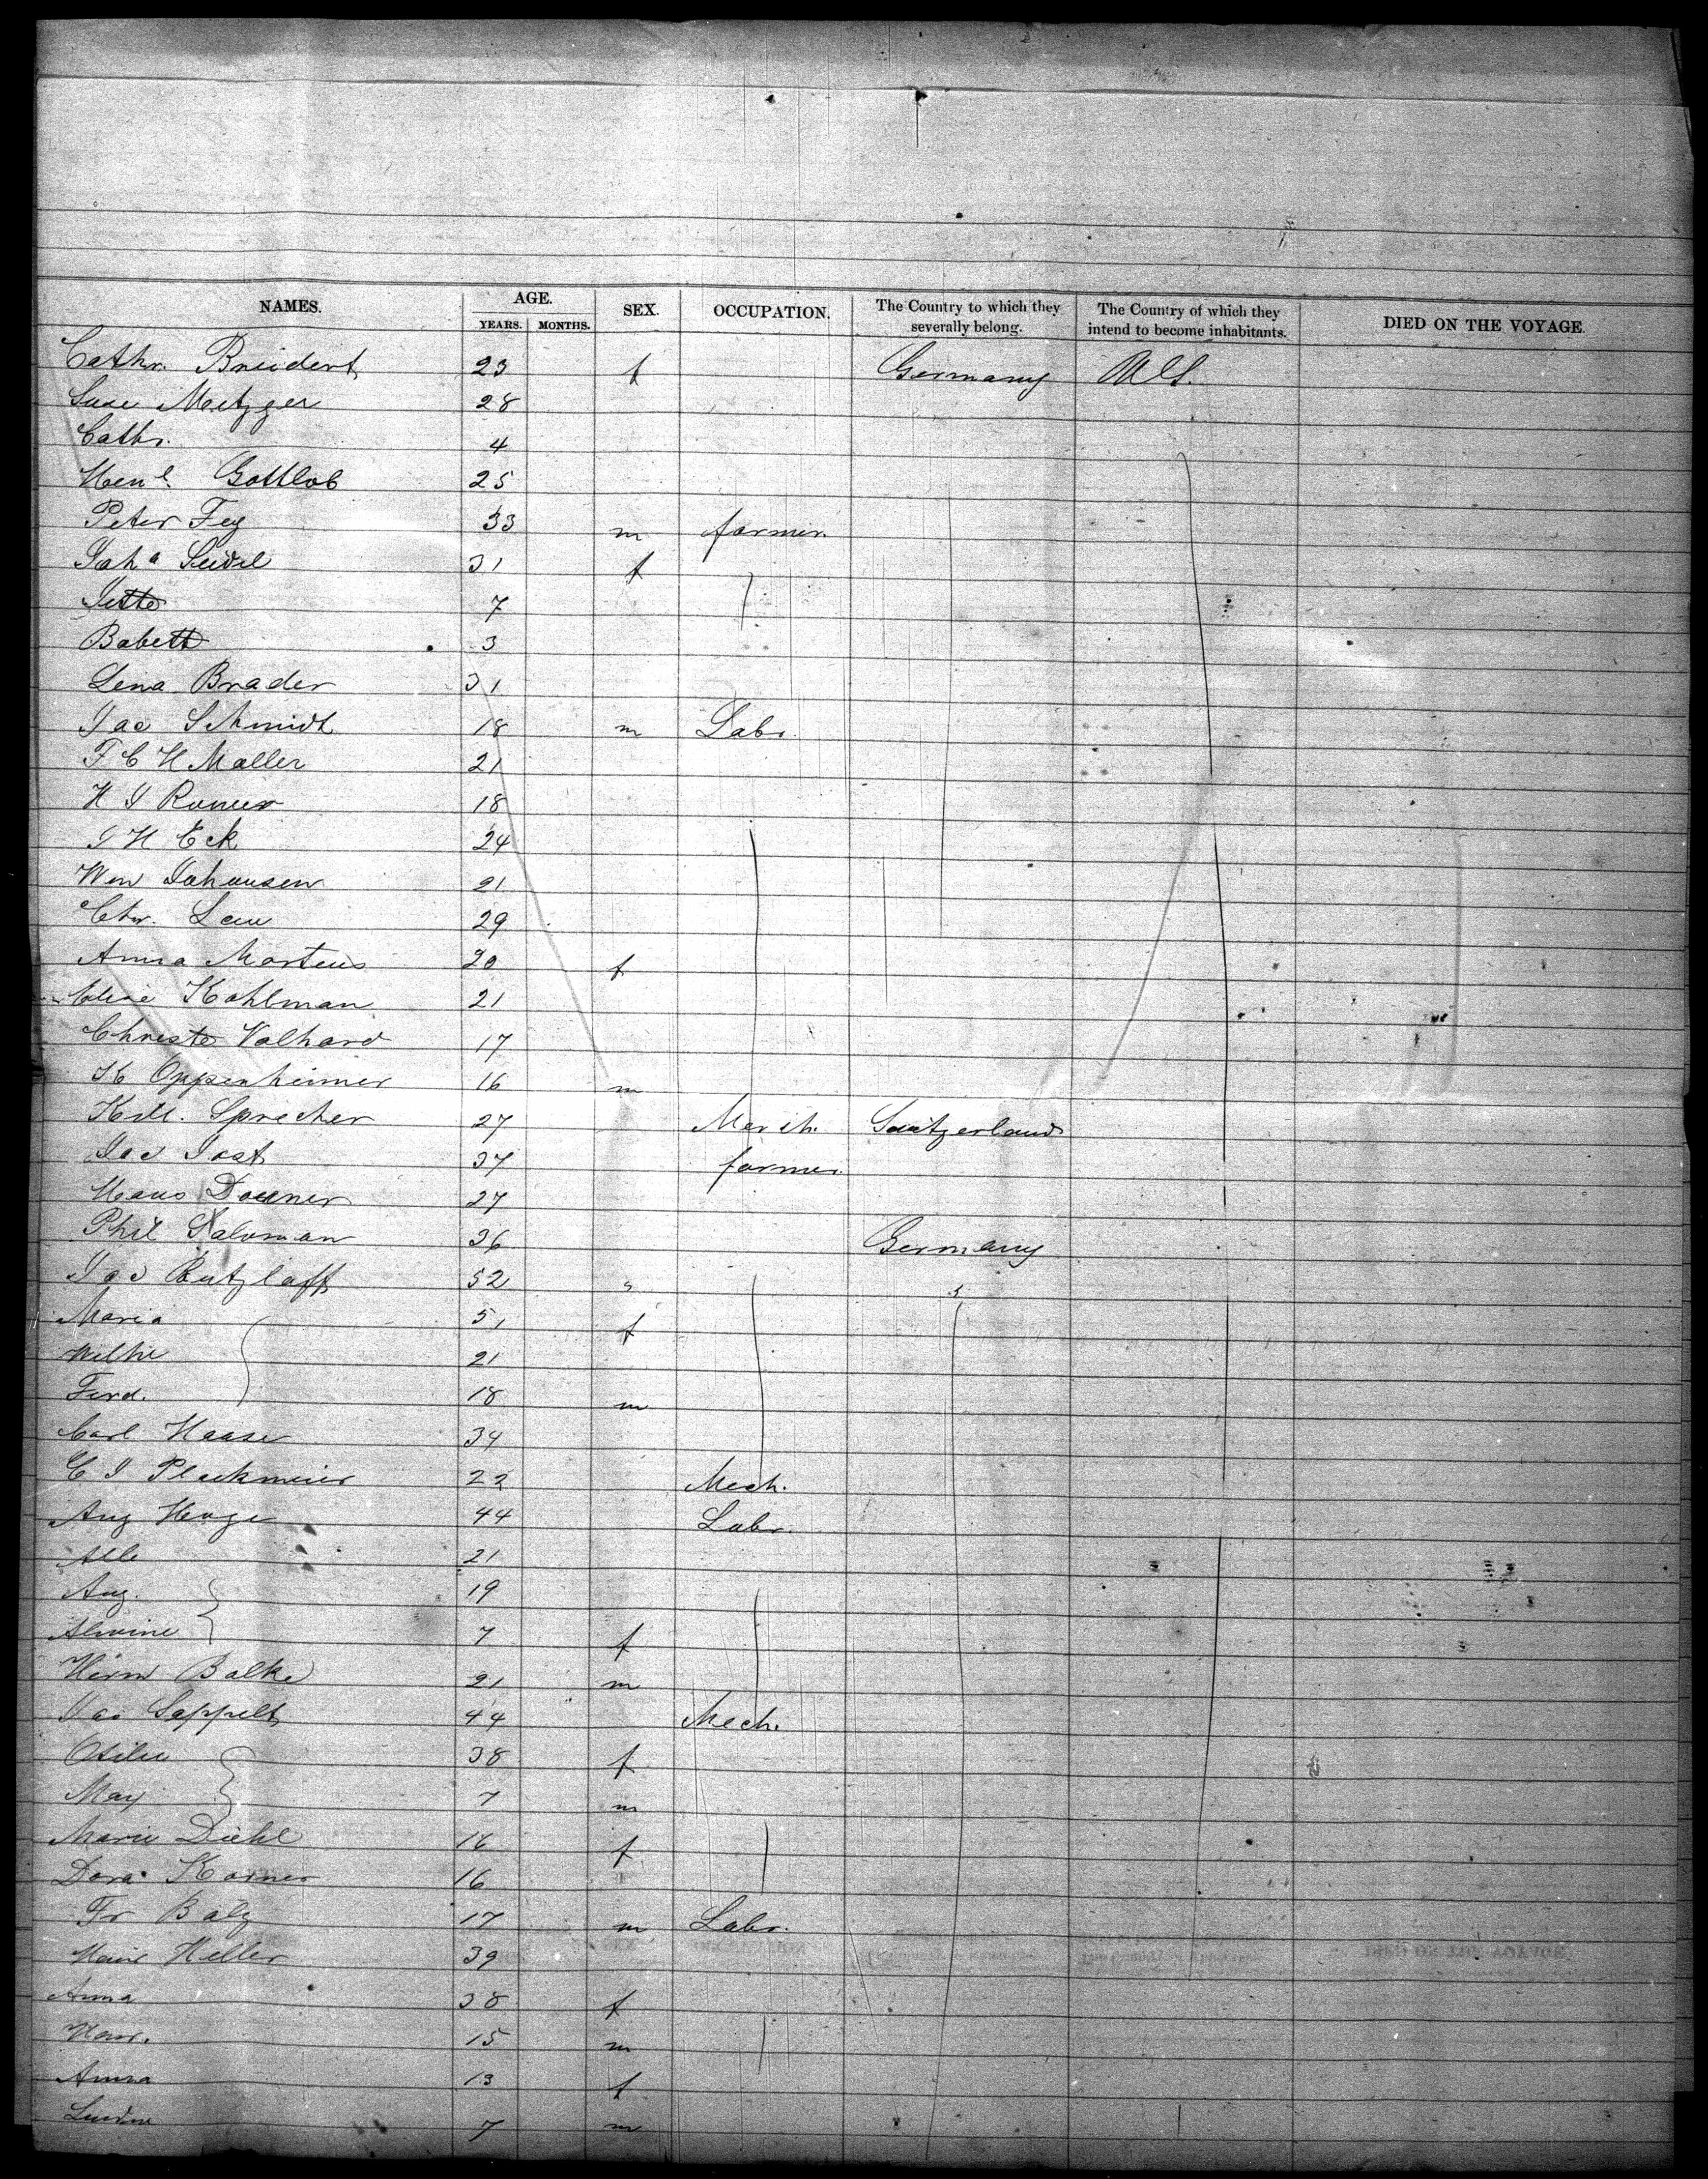 NAMES. AGE. YEARS. MONTHS. SEX. OCCUPATION. The Country to which they severally belong. The Country of which they intend to become inhabitants. DIED ON THE VOYAGE.
Cathr. Breidert 23 f Germany U.S.
Suse Metzger 28
Cathr. 4
Gottlob 25
Peter Fey 33 m farmer.
Joha Seidel 31 f
Jette 7
Babett 3
Lena Brader 31
Jac Schmidt 18 m Labr.
F C H Moller 21
H J 18
J H Eck 24
Wm Johannsen 21
Chr. Lau 29
Anna Martens 20 f
Elise Kohlman 21
Christe Valhard 17
K Oppenheimer 16 m
Sprecher 27 March. Switzerland
Jac Jost 37 farmer.
Hans Donner 27
Phil Salomon 36 Germany
Jac Rutzlaff 52
Maria 51 f
Wilhe 21
Ferd. 18 m
Carl Haase 34
C J Plackmeier 22 Mech.
Aug Hoge 44 Labr.
Alb 21
Aug. 19
Alwine 7 f
Herm Balke 21 m
Jac Seppelt 44 Mech.
Otilie 38 f
Max 7 m
Marie Diehl 16 f
Dora Korner 16
Fr Balz 17 m Labr.
Heinr Heller 39
Anna 38 f
Heinr. 15 m
Anna 13 f
7 m